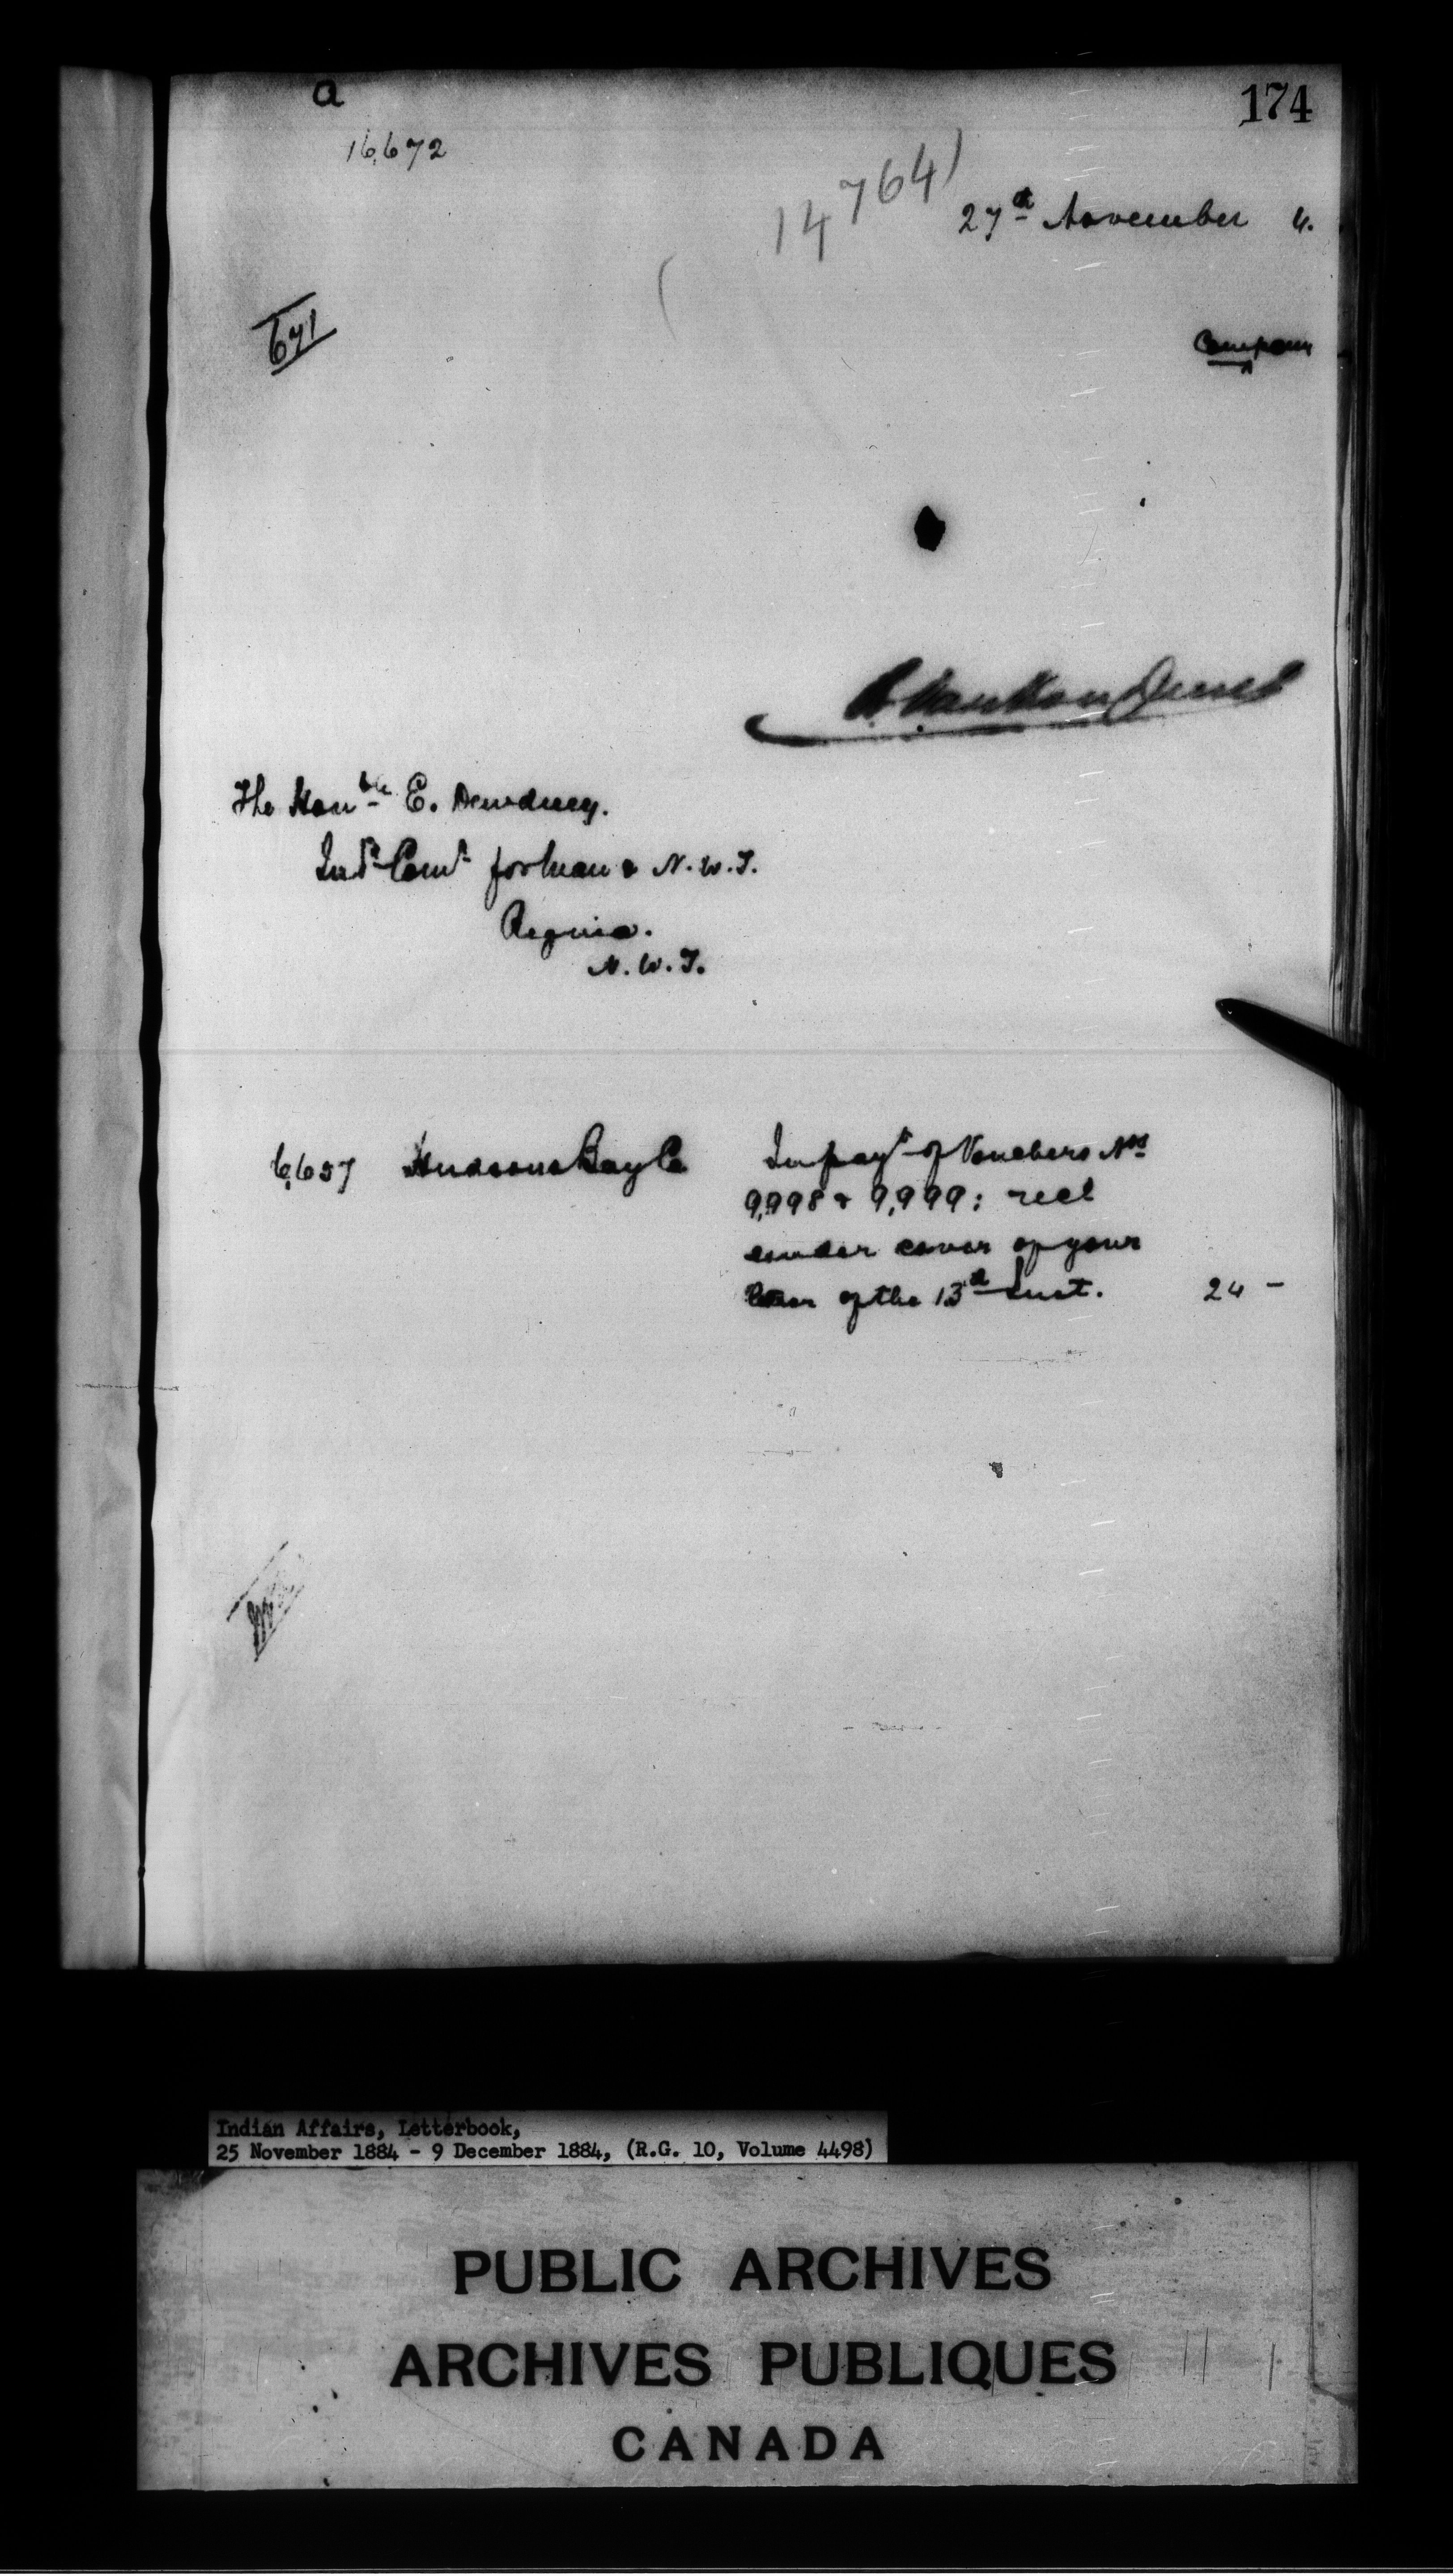 a
174
16,672
14764
27th November 4.
671
Company
L. VanKoughnet
The Honble E. Dewdney.
Indn Comr for Man & N.W.T.
Regina.
N.W.T.
6,657 Hudsons Bay Co In payt of Vouchers Nos
9,998 & 9,999; recd
under cover of your
letter of the 13th Inst. 24 -
Indian Affairs, Letterbook,
25 November 1884 - 9 December 1884, (R.G. 10, Volume 4498)
PUBLIC ARCHIVES
ARCHIVES PUBLIQUES
CANADA